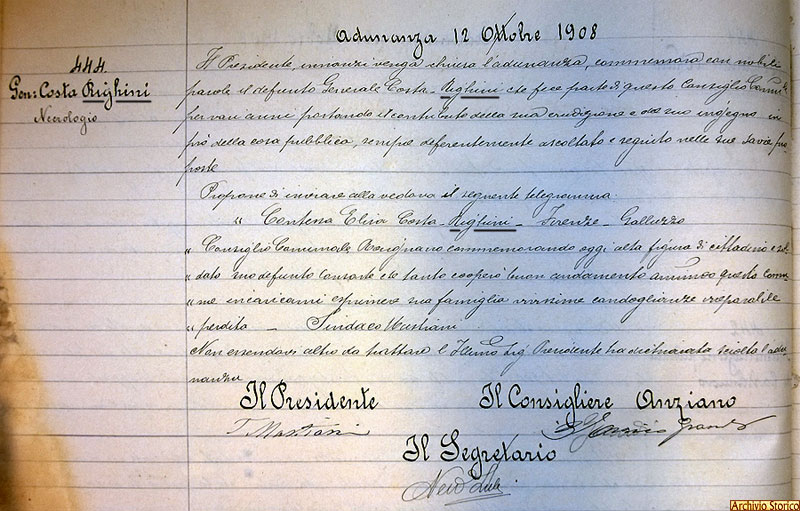 Adunanza 12 Ottobre 1908
444.
Gen: Costa Righini
Necrologio
Il Presidente, innanzi venga chiusa l'adunanza, commemora con nobili
parole il defunto Generale Costa-Righini che fece parte di questo Consiglio Comle
per vari anni portando il contributo della sua erudizione e del suo ingegno in
prò della cosa pubblica, sempre deferentemente ascoltato e seguito nelle sue savie pro
poste
Propone di inviare alla vedova il seguente telegramma:
" Contessa Elisa Costa-Righini - Firenze - Galluzzo
" Consiglio Comunale commemorando oggi alta figura di cittadino e sol
" dato suo defunto Consorte che tanto cooperò buon andamento questo Comu
" ne incaricami esprimere sua famiglia vivissime condoglianze irreparabile
" perdita - Sindaco
Non essendovi altro da trattare l'Illmo Sig. Presidente ha dichiarata sciolta l'adu
nanza
Il Presidente
Il Consigliere Anziano
Il Segretario
Archivio Storico